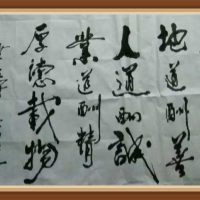 地道酬善
人道酬誠
業道酬精
厚德載物